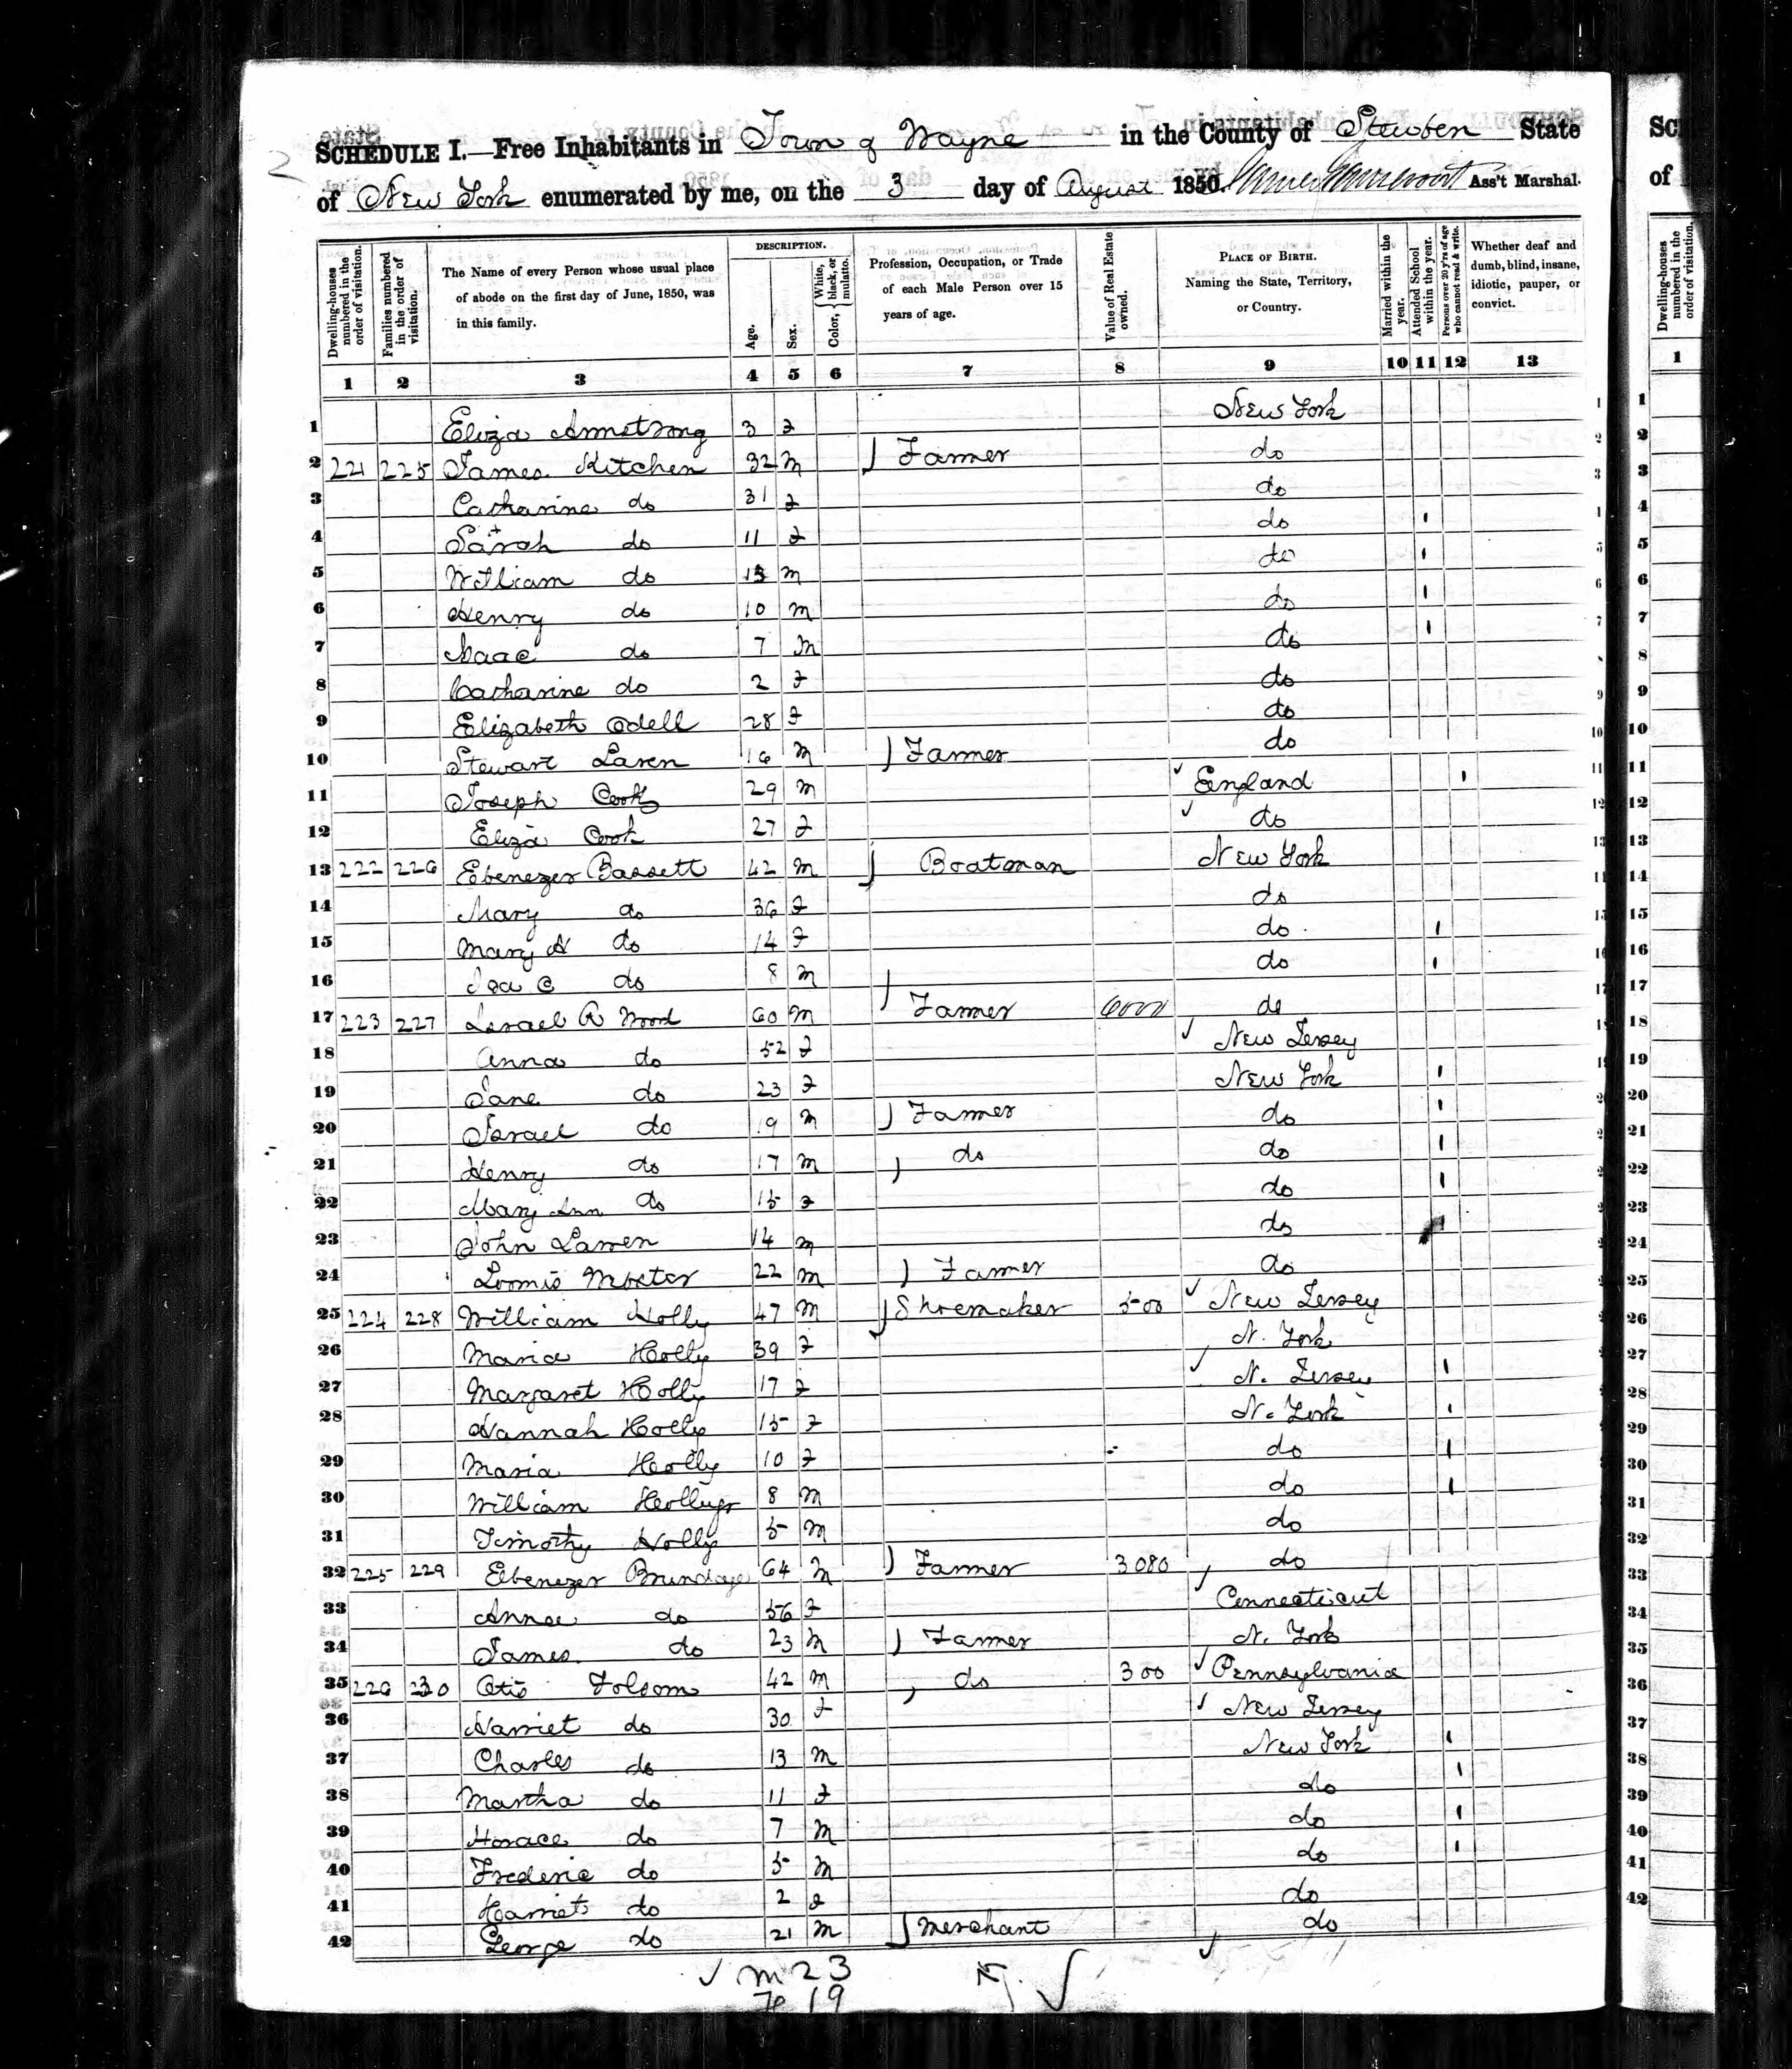 SCHEDULE I.—Free Inhabitants in Town of Wayne in the County of Steuben State
of New York enumerated by me, on the 3 day of August 1850. Ass't Marshal.
Dwelling-houses numbered in the order of visitation.
Families numbered in the order of visitation.
The Name of every Person whose usual place of abode on the first day of June, 1850, was in this family.
DESCRIPTION.
Age.
Sex.
Color, { White, black, or mulatto.
Profession, Occupation, or Trade of each Male Person over 15 years of age.
Value of Real Estate owned.
PLACE OF BIRTH. Naming the State, Territory, or Country.
Married within the year.
Attended School within the year.
Persons over 20 y'rs of age who cannot read & write.
Whether deaf and dumb, blind, insane, idiotic, pauper, or convict.
1 2 3 4 5 6 7 8 9 10 11 12 13
1 Eliza Armstrong 3 F New York
2 221 225 James Kitchen 32 M Farmer do
3 Catharine do 31 F do
4 Sarah do 11 F do 1
5 William do 13 M do 1
6 Henry do 10 M do 1
7 Isaac do 7 M do 1
8 Catharine do 2 F do
9 Elizabeth Odell 28 F do
10 Stewart Laren 16 M Farmer do
11 Joseph Cook 29 M England 1
12 Eliza Cook 27 F do
13 222 226 Ebenezer Bassett 42 M Boatman New York
14 Mary do 36 F do
15 Mary A do 14 F do 1
16 Ira C do 8 M do 1
17 223 227 Israel R Wood 60 M Farmer 6000 do
18 Anna do 52 F New Jersey
19 Jane do 23 F New York 1
20 Israel do 19 M Farmer do 1
21 Henry do 17 M do do 1
22 Mary Ann do 15 F do 1
23 John Larren 14 M do 1
24 Loomis 22 M Farmer do
25 224 228 William Holly 47 M Shoemaker 500 New Jersey
26 Maria Holly 39 F N. York
27 Margaret Holly 17 F N. Jersey 1
28 Hannah Holly 15 F N. York 1
29 Maria Holly 10 F do 1
30 William Holly jr 8 M do 1
31 Timothy Holly 5 M do
32 225 229 Ebenezer Brundage 64 M Farmer 3080 do
33 Anna do 56 F Connecticut
34 James do 23 M Farmer N. York
35 226 230 Otis Folsom 42 M do 300 Pennsylvania
36 Harriet do 30 F New Jersey
37 Charles do 13 M New York 1
38 Martha do 11 F do 1
39 Horace do 7 M do 1
40 Frederic do 5 M do 1
41 Harriet do 2 F do
42 George do 21 M Merchant do
M 23
F 19